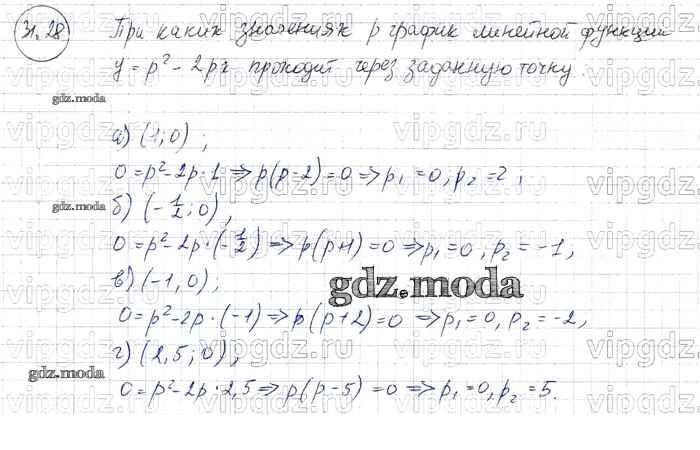 31.28 При каких значениях p график линейной функции
y = p² - 2px проходит через заданную точку.
gdz.moda
а) (1; 0) ;
0 = p² - 2p · 1 ⇒ p(p-2) = 0 ⇒ p₁ = 0, p₂ = 2 ;
gdz.moda
б) (-1/2 ; 0) ,
0 = p² - 2p · (-1/2) ⇒ p(p+1) = 0 ⇒ p₁ = 0 , p₂ = -1 ,
в) (-1, 0) ;
gdz.moda
0 = p² - 2p · (-1) ⇒ p(p+2) = 0 ⇒ p₁ = 0, p₂ = -2,
г) (2,5 ; 0) ;
gdz.moda
0 = p² - 2p · 2,5 ⇒ p(p-5) = 0 ⇒ p₁ = 0, p₂ = 5.
vipgdz.ru